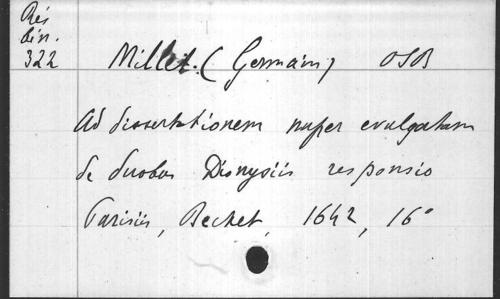 Rés
lin.
322
Millet. (Germain) OSB
Ad dissertationem nuper evulgatam
de duobus Dionysiis responsio
Parisiis, Bechet, 1642, 16°